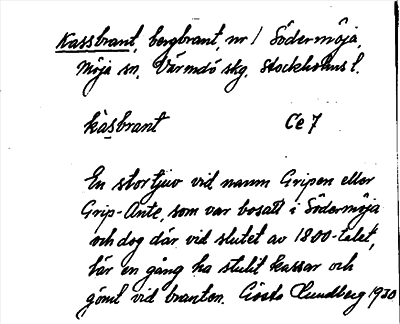 Kassbrant, bergbrant, nr 1 Södermöja,
Möja sn, Värmdö skg, Stockholms l.
kàsbrant Ce 7
En stortjuv vid namn Gripen eller
Grip-Ante, som var bosatt i Södermöja
och dog där vid slutet av 1800-talet,
lär en gång ha stulit kassar och
gömt vid branten. Gösta Lundberg 1930